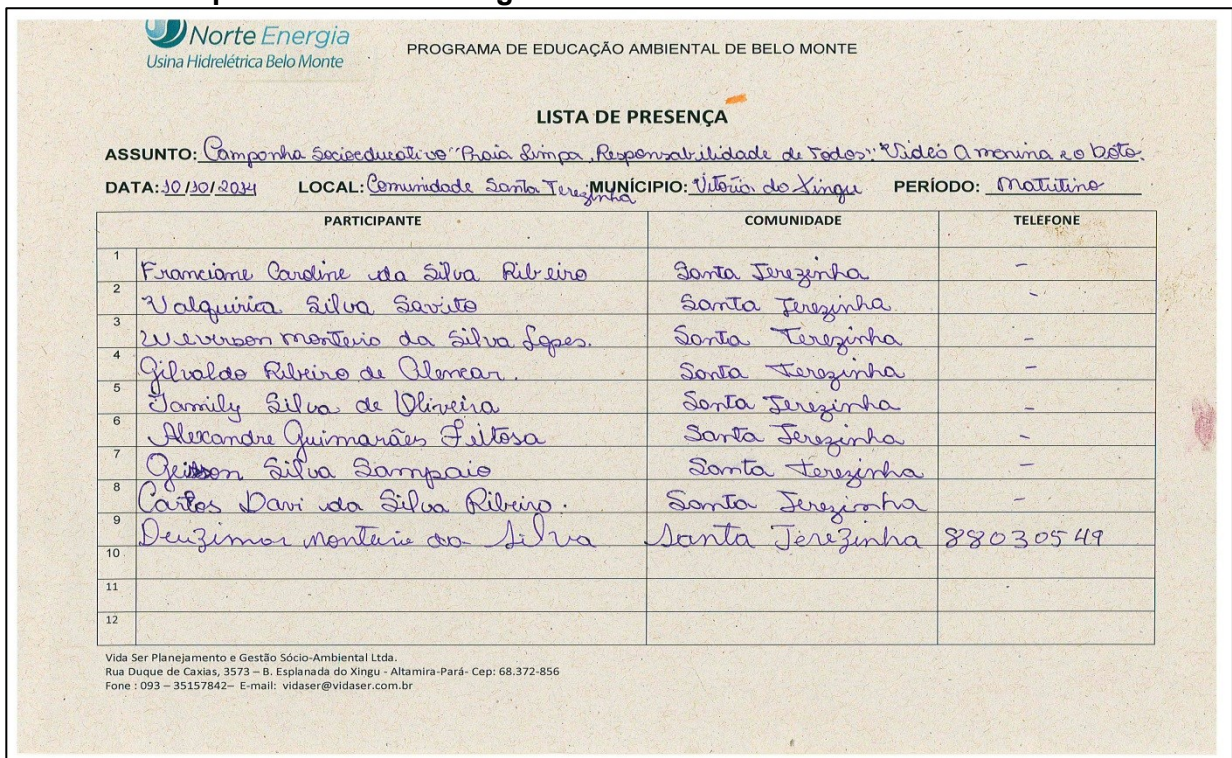 Norte Energia
Usina Hidrelétrica Belo Monte
PROGRAMA DE EDUCAÇÃO AMBIENTAL DE BELO MONTE
LISTA DE PRESENÇA
ASSUNTO: Camponha Socioeducativo "Praia Limpa, Responsabilidade de Todos": Vídeo A menina e o boto.
DATA: 10/10/2014 LOCAL: Comunidade Santa Terezinha MUNÍCIPIO: Vitória do Xingu PERÍODO: Matutino
PARTICIPANTE COMUNIDADE TELEFONE
1 Franciane Caroline da Silva Ribeiro Santa Terezinha -
2 Valquiria Silva Santa Terezinha -
3 Weverson monteiro da Silva Lopes. Santa Terezinha -
4 Gilvaldo Ribeiro de Alencar. Santa Terezinha -
5 Silva de Oliveira Santa Terezinha -
6 Alexandre Guimarães Feitosa Santa Terezinha -
7 Silva Sampaio Santa terezinha -
8 Carlos Davi da Silva Ribeiro. Santa Terezinha -
9 Deuzimar monteiro da Silva Santa Terezinha 88030549
10
11
12
Vida Ser Planejamento e Gestão Sócio-Ambiental Ltda.
Rua Duque de Caxias, 3573 – B. Esplanada do Xingu - Altamira-Pará- Cep: 68.372-856
Fone : 093 – 35157842– E-mail: vidaser@vidaser.com.br